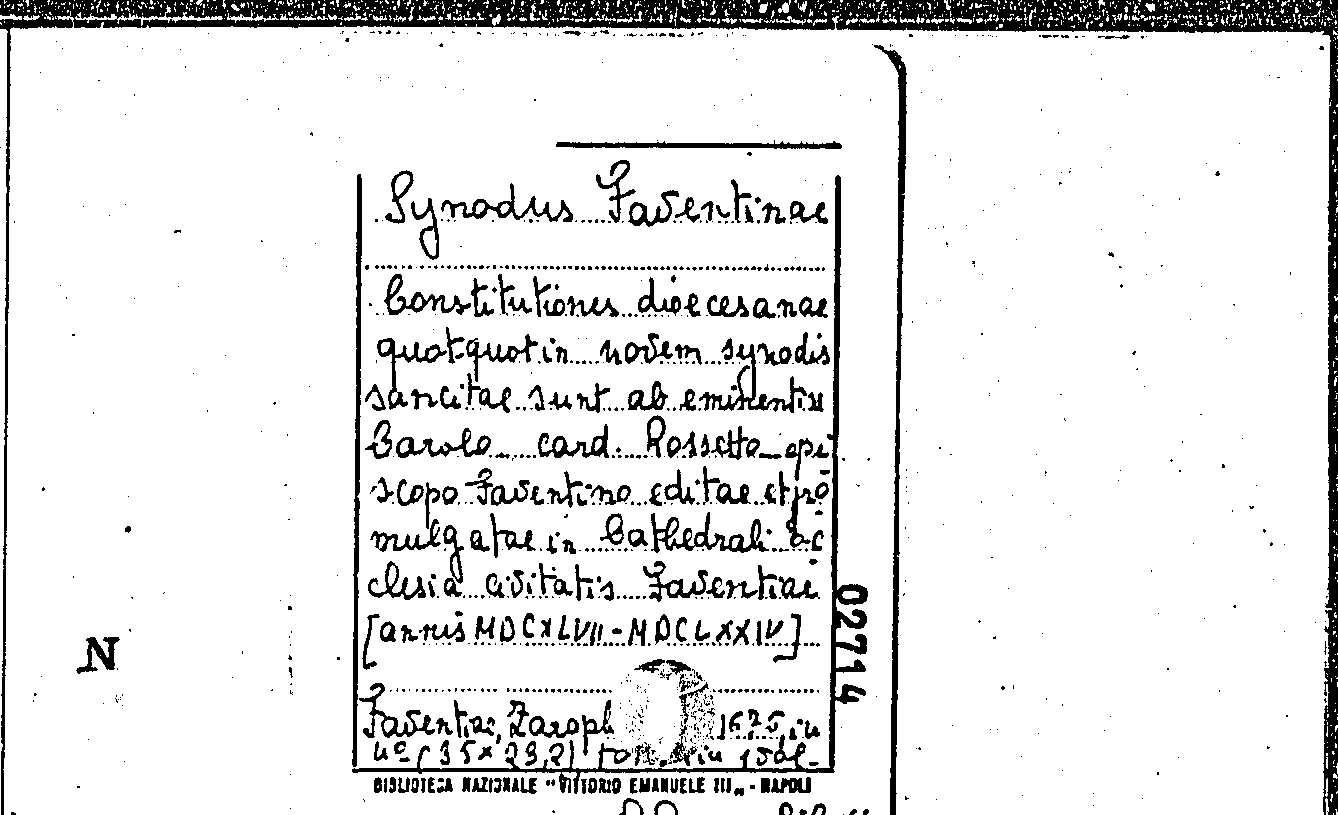 Synodus Faventinae
Constitutiones dioecesanae
quotquot in novem synodis
sancitae sunt ab eminentiss
Carolo card. Rossetto epi
scopo Faventino editae et pro
mulgatae in Cathedrali Ec
clesia civitatis Faventiae
[annis MDCXLVII-MDCLXXIV]
02714
N
Faventiae, Zaraph 1675, in
4º (35x23,2) in 1 vol.
BIBLIOTECA NAZIONALE "VITTORIO EMANUELE III" - NAPOLI